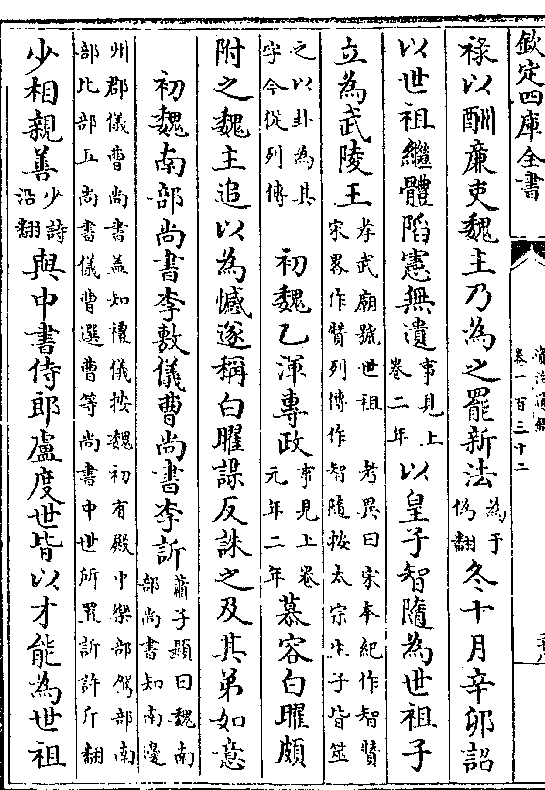 欽定四庫全書
資治通鑑
卷一百三十二
祿以酬廉吏魏主乃為之罷新法為于偽翻冬十月辛卯詔
以世祖繼體陷憲無遺事見上卷二年以皇子智隨為世祖子
立為武陵王孝武廟號世祖考異曰宋本紀作智贊宋畧作贊列傳作智隨按太宗生子皆筮
之以卦為其字今從列傳初魏乙渾專政事見上卷元年二年慕容白曜頗
附之魏主追以為憾遂稱白曜謀反誅之及其弟如意
初魏南部尚書李敷儀曹尚書李訢蕭子顯曰魏南部尚書知南邊
州郡儀曹尚書盖知禮儀按魏初有殿中樂部駕部南
部北部五尚書儀曹選曹等尚書中世所置訢許斤翻
少相親善少詩沼翻與中書侍郎盧度世皆以才能為世祖